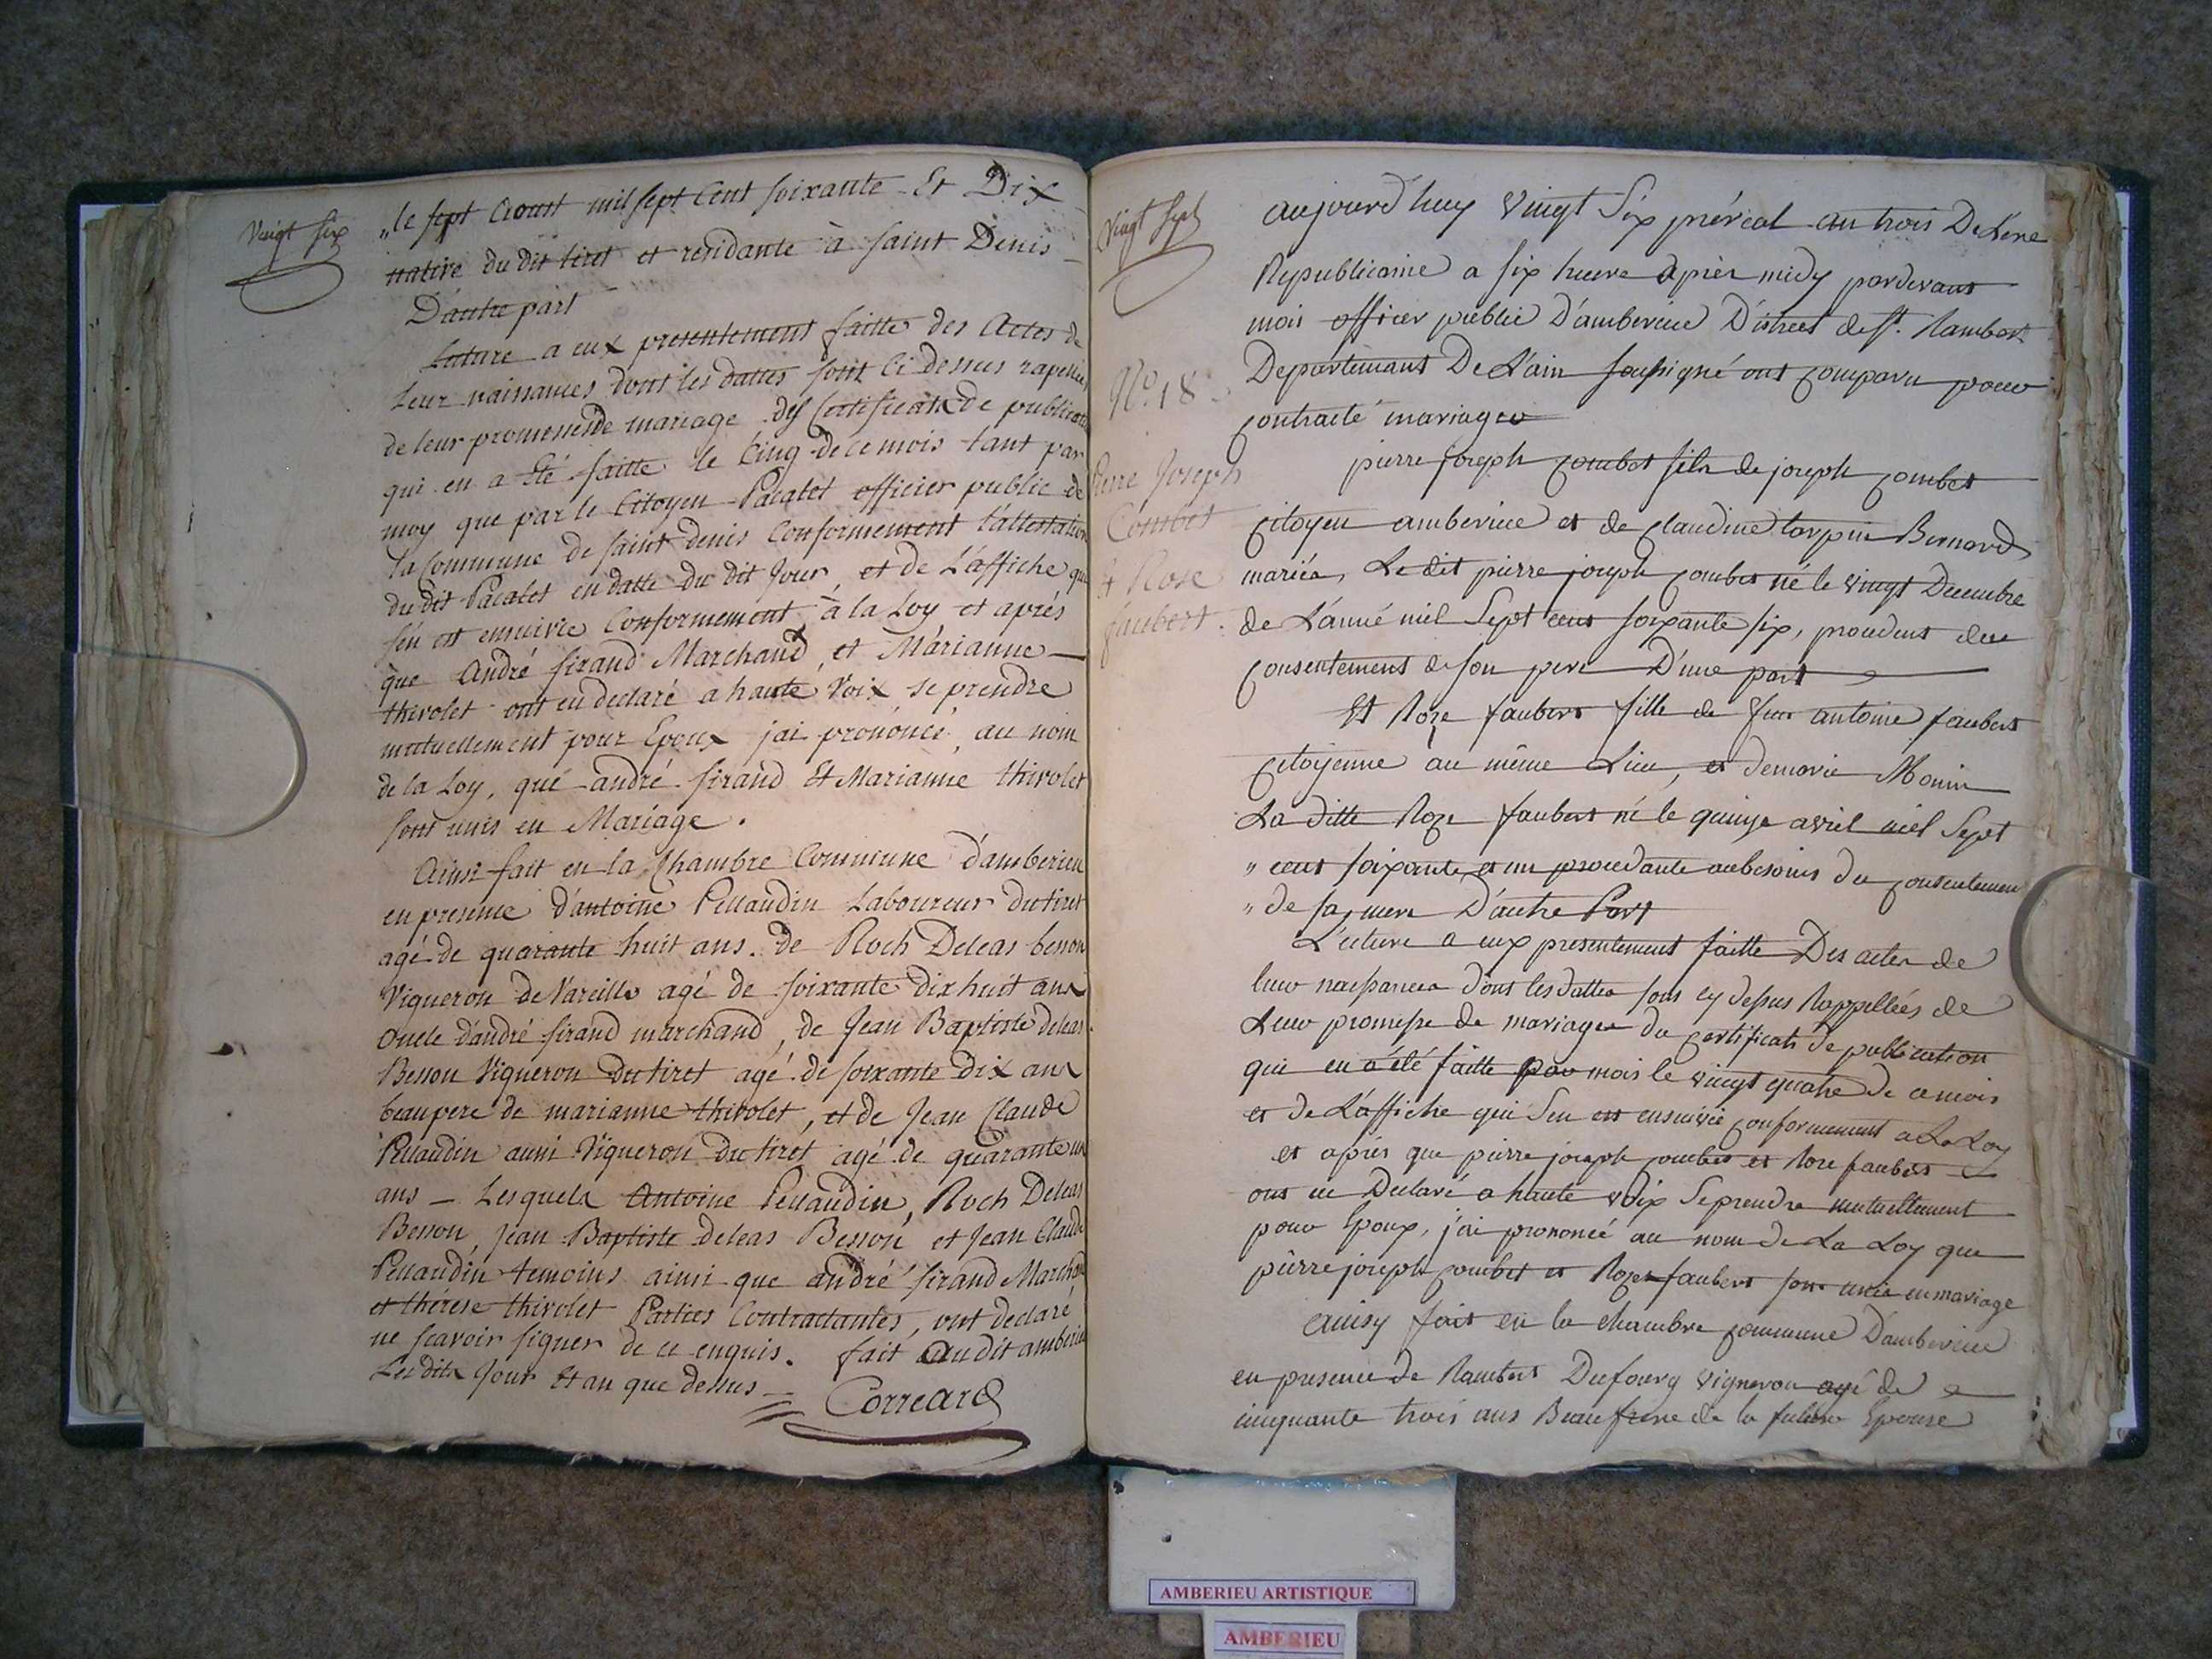 Vingt six
„le sept Aoust mil sept Cent soixante Et Dix
native du dit tiret et residante à Saint Denis
D'autre part
Lecture a eux presentement faitte des Actes de
Leur naissances dont les dattes sont Ci dessus rapellés
de leur promesses de mariage des Certificats de publication
qui en a Eté faitte le Cinq de ce mois tant par
moy que par le Citoyen Pacalet officier public de
la Commune de saint denis Conformement l'attestation
du dit Pacalet en datte du dit Jour, et de L'affiche qui
s'en est ensuivie Conformement à la Loy et aprés
que André sirand Marchand, et Marianne
thivolet ont eu declaré a haute Voix se prendre
mutuellement pour Epoux jai prononcé, au nom
de la Loy, que andré sirand Et Marianne thivolet
sont unis en Mariage.
Ainsi fait en la Chambre Commune d'amberieu
en presence d'antoine Pellaudin Laboureur du tiret
agé de quarante huit ans. de Roch Deleas besson
Vigneron de Vareille agé de soixante dix huit ans
oncle d'andré sirand marchand, de Jean Baptiste deleas
Besson Vigneron Du tiret agé de soixante Dix ans
beaupere de marianne thivolet, et de Jean Claude
Pellaudin aussi Vigneron Du tiret agé de quarante un
ans – Lesquels Antoine Pellaudin, Roch Deleas
Besson, Jean Baptiste deleas Besson, et Jean Claude
Pellaudin temoins ainsi que andré sirand Marchand
et thérese thivolet Parties Contractantes, ont declaré
ne scavoir signer de ce enquis. fait Audit amberieu
Les dits Jour Et an que dessus
Correard
Vingt Sept
N.º 18
Pierre Joseph
Combet
& Rose
faubert.
aujourd'huy vingt Six prérial an trois De Lére
Republicaine a six heure aprèr midy pardevant
moi officier publie D'amberieu District de St. Rambert
Departemant De L'ain soussigné ont comparu pour
contracté mariage
pierre joseph combet fils de joseph combet
citoyen amberieu et de claudine tarpin Bernard
mariés, Le dit pierre joseph combet né le vingt Decembre
de L'anné miel Sept cent soixante six, procedent du
consentement de son pere D'une part
Et Roze faubert fille de feu antoine faubert
citoyenne au même Lieu, et demarie Monin
La ditte Roze faubert né le quinze avril miel Sept
„ cent soixante et un procedante aubesoins du consentement
„ de sa mere D'autre Part
L'ecture a eux presentement faitte Des actes de
leur naissances dont les dattes sont cy dessus Rappellées de
Leur promesse de mariage du certificats de publication
qui en a été faitte par mois le vingt quatre de ce mois
et de L'affiche qui Sen est ensuivie conformement a La Loy
et après que pierre joseph combet et Roze faubert
ont eu Declaré a haute voix Se prendre mutuellement
pour Epoux, j'ai prononcé au nom de La Loy que
pierre joseph combet et Roze faubert son unis en mariage
ainsy fait en la chambre commune D'amberieu
en presence de Rambert Dufourg vigneron agé de
cinquante trois ans Beaufrere de la future Epouse
AMBERIEU ARTISTIQUE
AMBERIEU